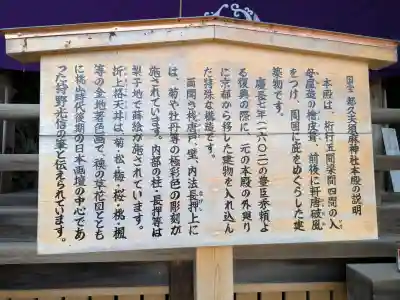 国宝 都久夫須麻神社本殿の説明
本殿は、桁行五間梁間四間の入
母屋造の檜皮葺、前後に軒唐破風
をつけ、周囲に庇をめぐらした建
築物です。
慶長七年(一六〇二)の豊臣秀頼よ
る復興の際に、元の本殿の外廻り
に京都から移した建物を入れ込ん
だ特殊な構造です。
両開き桟唐戸、壁、内法長押上に
は、菊や牡丹等の極彩色の彫刻が
施されています。内部の柱・長押等は
梨子地で蒔絵が施されています。
折上格天井は菊・松・梅・桜・桃・楓
等の金地著色画で、種の草花図ととも
に桃山時代後期の日本画壇の中心であ
った狩野光信の筆と伝えられています。